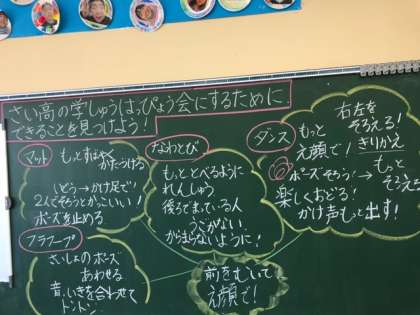 さい高の学しゅうはっぴょう会にするために
できることを見つけよう！
マット
もっとすばやく
かたづける
いどう→かけ足で！
2人でそろうとかっこいい！
ポーズを止める
フラフープ
さいしょのポーズ
あわせる
音、いきを合わせて
トントン
なわとび
もっととべるように
れんしゅう
後ろでまっている人
うごかない
からまらないように！
前をむいて
えがおで！
ダンス
右左を
そろえる！
もっと
え顔で！
きりかえ
ポーズそろう！→もっと
そろえる
楽しくおどる！
かけ声もっと出す！